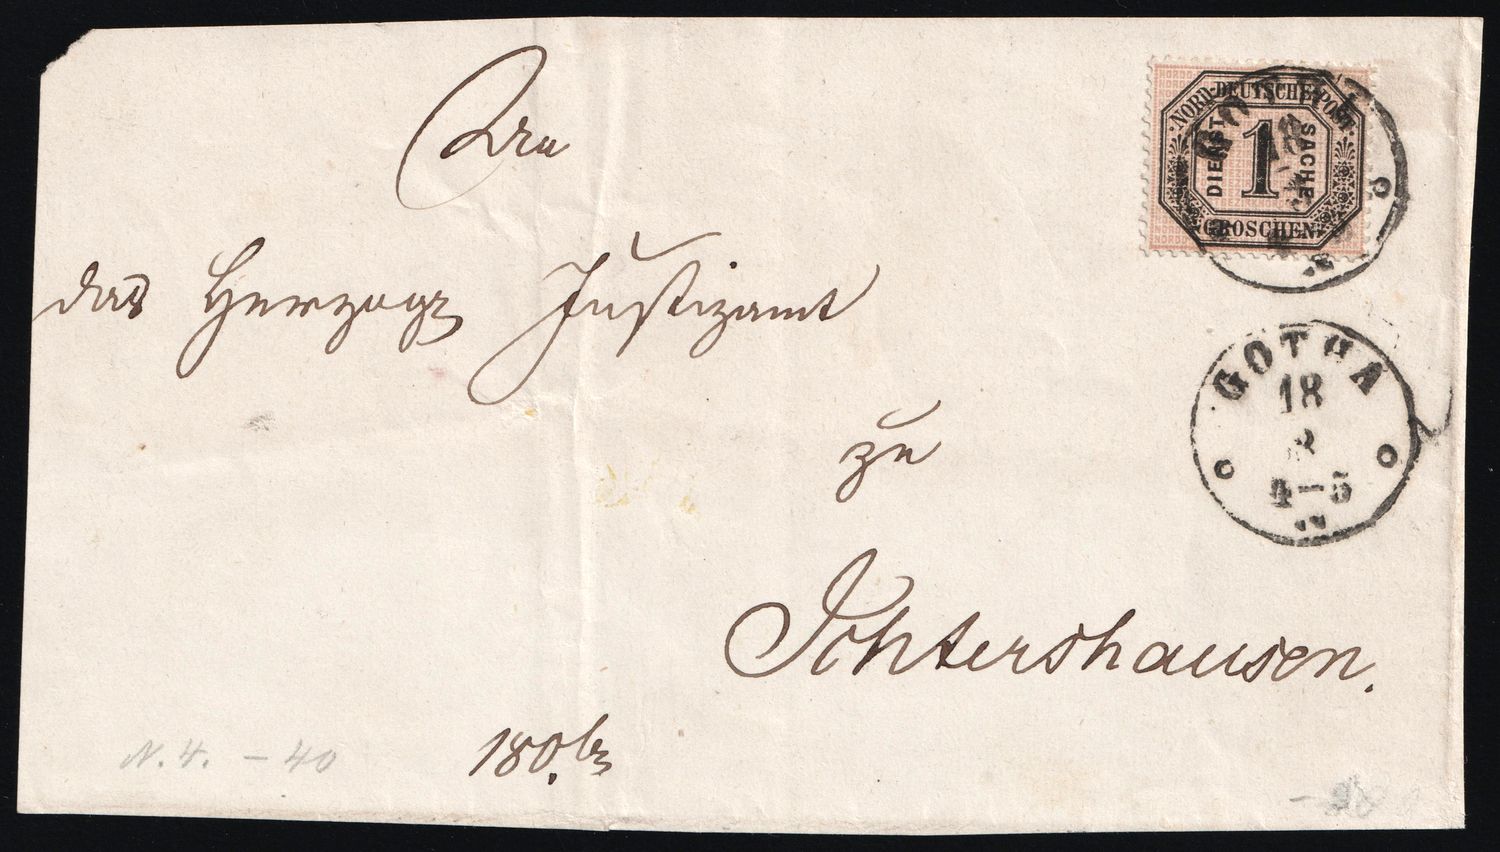 NORD-DEUTSCHE-POST
DIENST
1
SACHE
GROSCHEN
GOTHA
18
An
das Herzogz Justizamt
GOTHA
18
4-5
zu
Ichtershausen.
N. 4. - 40